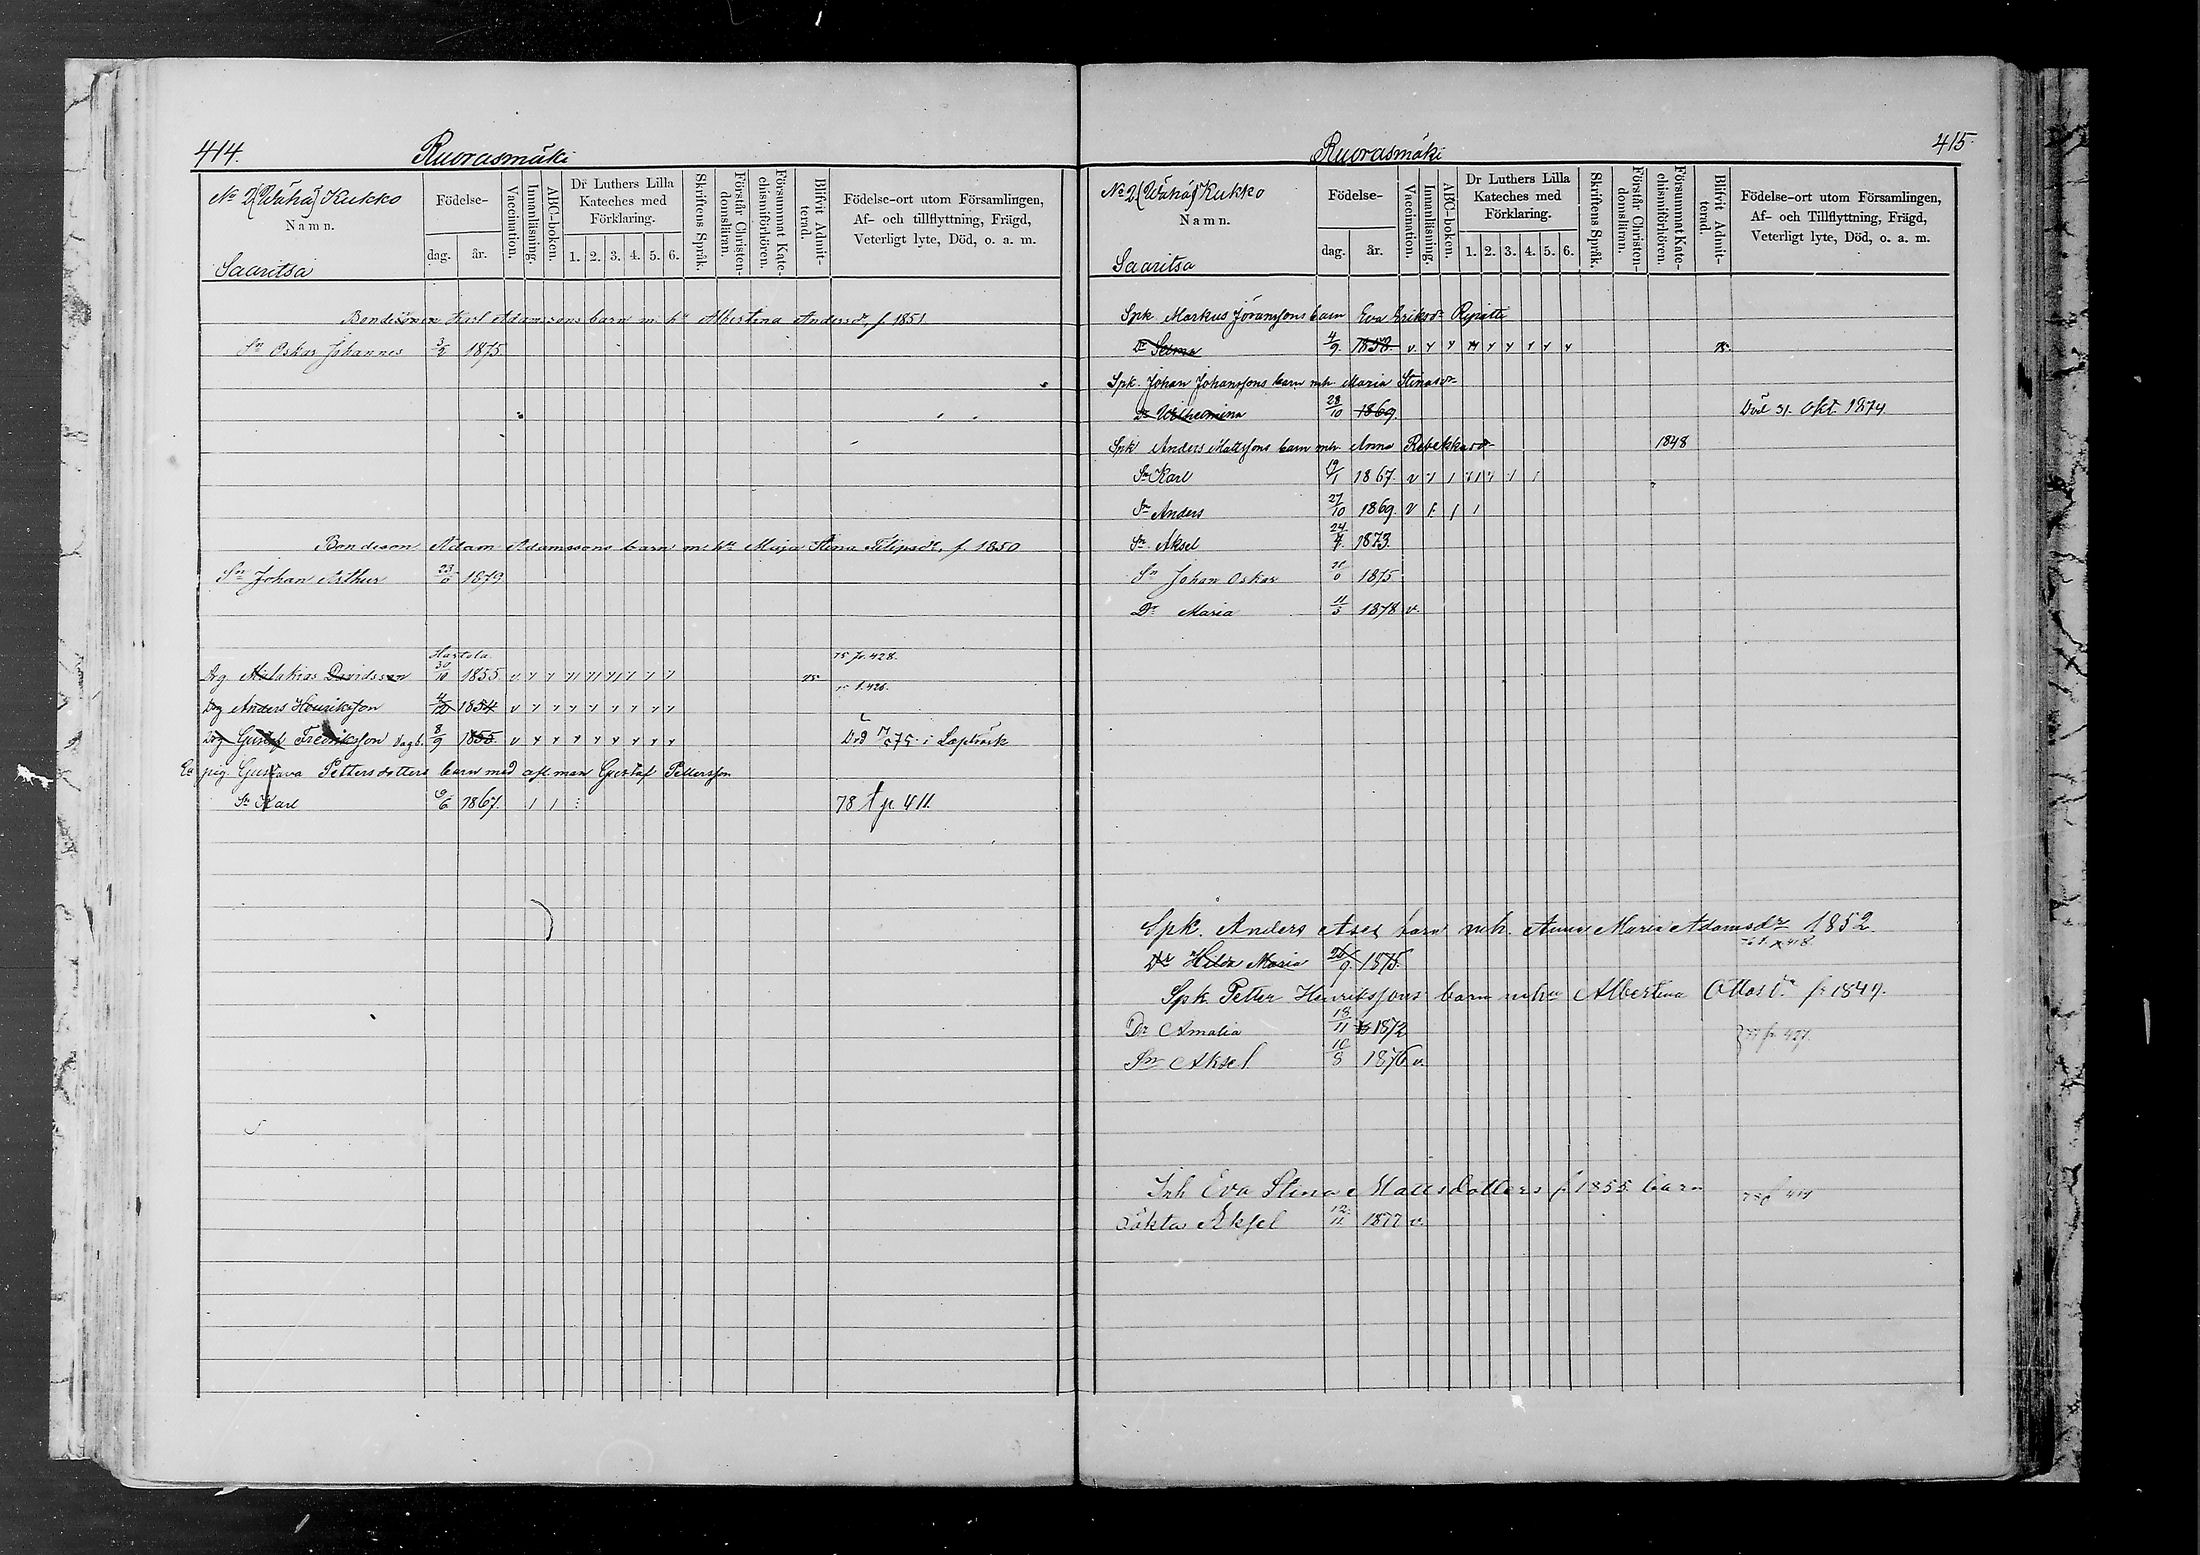 414.
Ruorasmäki
No 2 (Wähä) Kukko
Namn.
Saaritsa
Födelse-
dag.
år.
Vaccination.
Innanläsning.
ABC-boken.
Dr Luthers Lilla
Kateches med
Förklaring.
1. 2. 3. 4. 5. 6.
Skriftens Språk.
Förstår Christen-
domsläran.
Försummat Kate-
chismiförhören.
Blifvit Admit-
terad.
Födelse-ort utom Församlingen,
Af- och tillflyttning, Frägd,
Veterligt lyte, Död, o. a. m.
Bondesonen Karl Adamssons barn m. hu Albertina Andersdr, f. 1851
Sn Oskar Johannes 3/2 1875
Bondeson Adam Adamssons barn m. hu Maja Stina Filipsdr, f. 1850
Sn Johan Arthur 1879
Hartola
75 fr. 428.
Drg Malakias Davidsson 30/10 1855 v
Drg Anders Henriksson 1854 v
Drg Gustaf Fredriksson 8/9 1855. v Död i Laptträsk
pig. Gustava Pettersdotters barn med afl. man Gustaf Pettersson
Sn Karl 1867. 78 t p. 411.
415.
Ruorasmäki
No 2 (Wähä) Kukko
Namn.
Saaritsa
Födelse-
dag.
år.
Vaccination.
Innanläsning.
ABC-boken.
Dr Luthers Lilla
Kateches med
Förklaring.
1. 2. 3. 4. 5. 6.
Skriftens Språk.
Förstår Christen-
domsläran.
Försummat Kate-
chismiförhören.
Blifvit Admit-
terad.
Födelse-ort utom Församlingen,
Af- och Tillflyttning, Frägd,
Veterligt lyte, Död, o. a. m.
Spk Markus Göranssons barn Eva Eriksdr
Dr Selma 4/9. 1858. v.
Spk. Johan Johanssons barn mh. Maria Stinasdr
Dr Wilhelmina 28/10 1869. Död 31. Okt. 1874
Spk Anders Mattssons barn mh. Anna Rebekkasdr 1848
Sn Karl 19/1 1867. v
Sn Anders 27/10 1869. v
Sn Aksel 1873.
Sn Johan Oskar 1875
Dr Maria 11/3 1878 v.
Spk. Anders barn mh. Anna Maria Adamsdr 1852.
Dr Hilda Maria 1875.
Spk. Petter Henrikssons barn mhu Albertina Ottosdr f. 1849.
Dr Amalia 18/11 1872
Sn Aksel 10/8 1876 v.
Inh Eva Stina Mattsdotters f. 1855 barn
oäkta Aksel 12/11 1877 v.